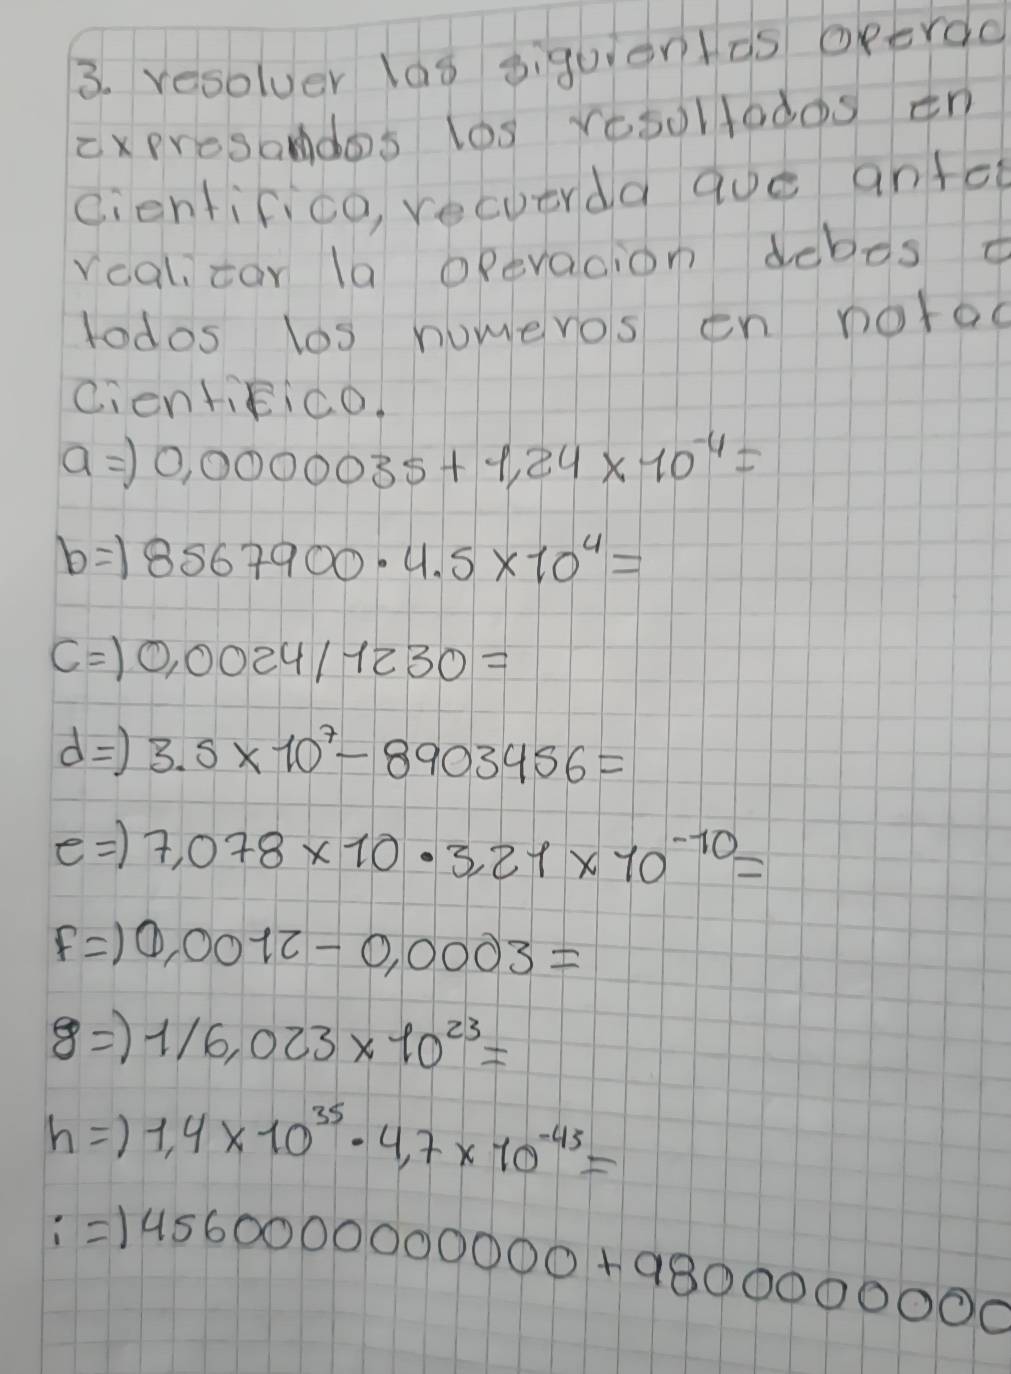 3. resolver las siguientes operac
expresandos los resultados en
cientifica, recuerda que antes
realizar la operacion debes e
todos los numeros en notac
cientifico.
a=) 0,0000035 + 1,24 x 10^-4 =
b=) 8567900 · 4.5 x 10^4 =
c=) 0,0024 / 1230 =
d=) 3.5 x 10^7 - 8903456 =
e=) 7,078 x 10 · 3,21 x 10^-10 =
f=) 0,0012 - 0,0003 =
g=) 1/6,023 x 10^23 =
h=) 1,4 x 10^35 · 4,7 x 10^-43 =
i=) 456000000000 + 9800000000